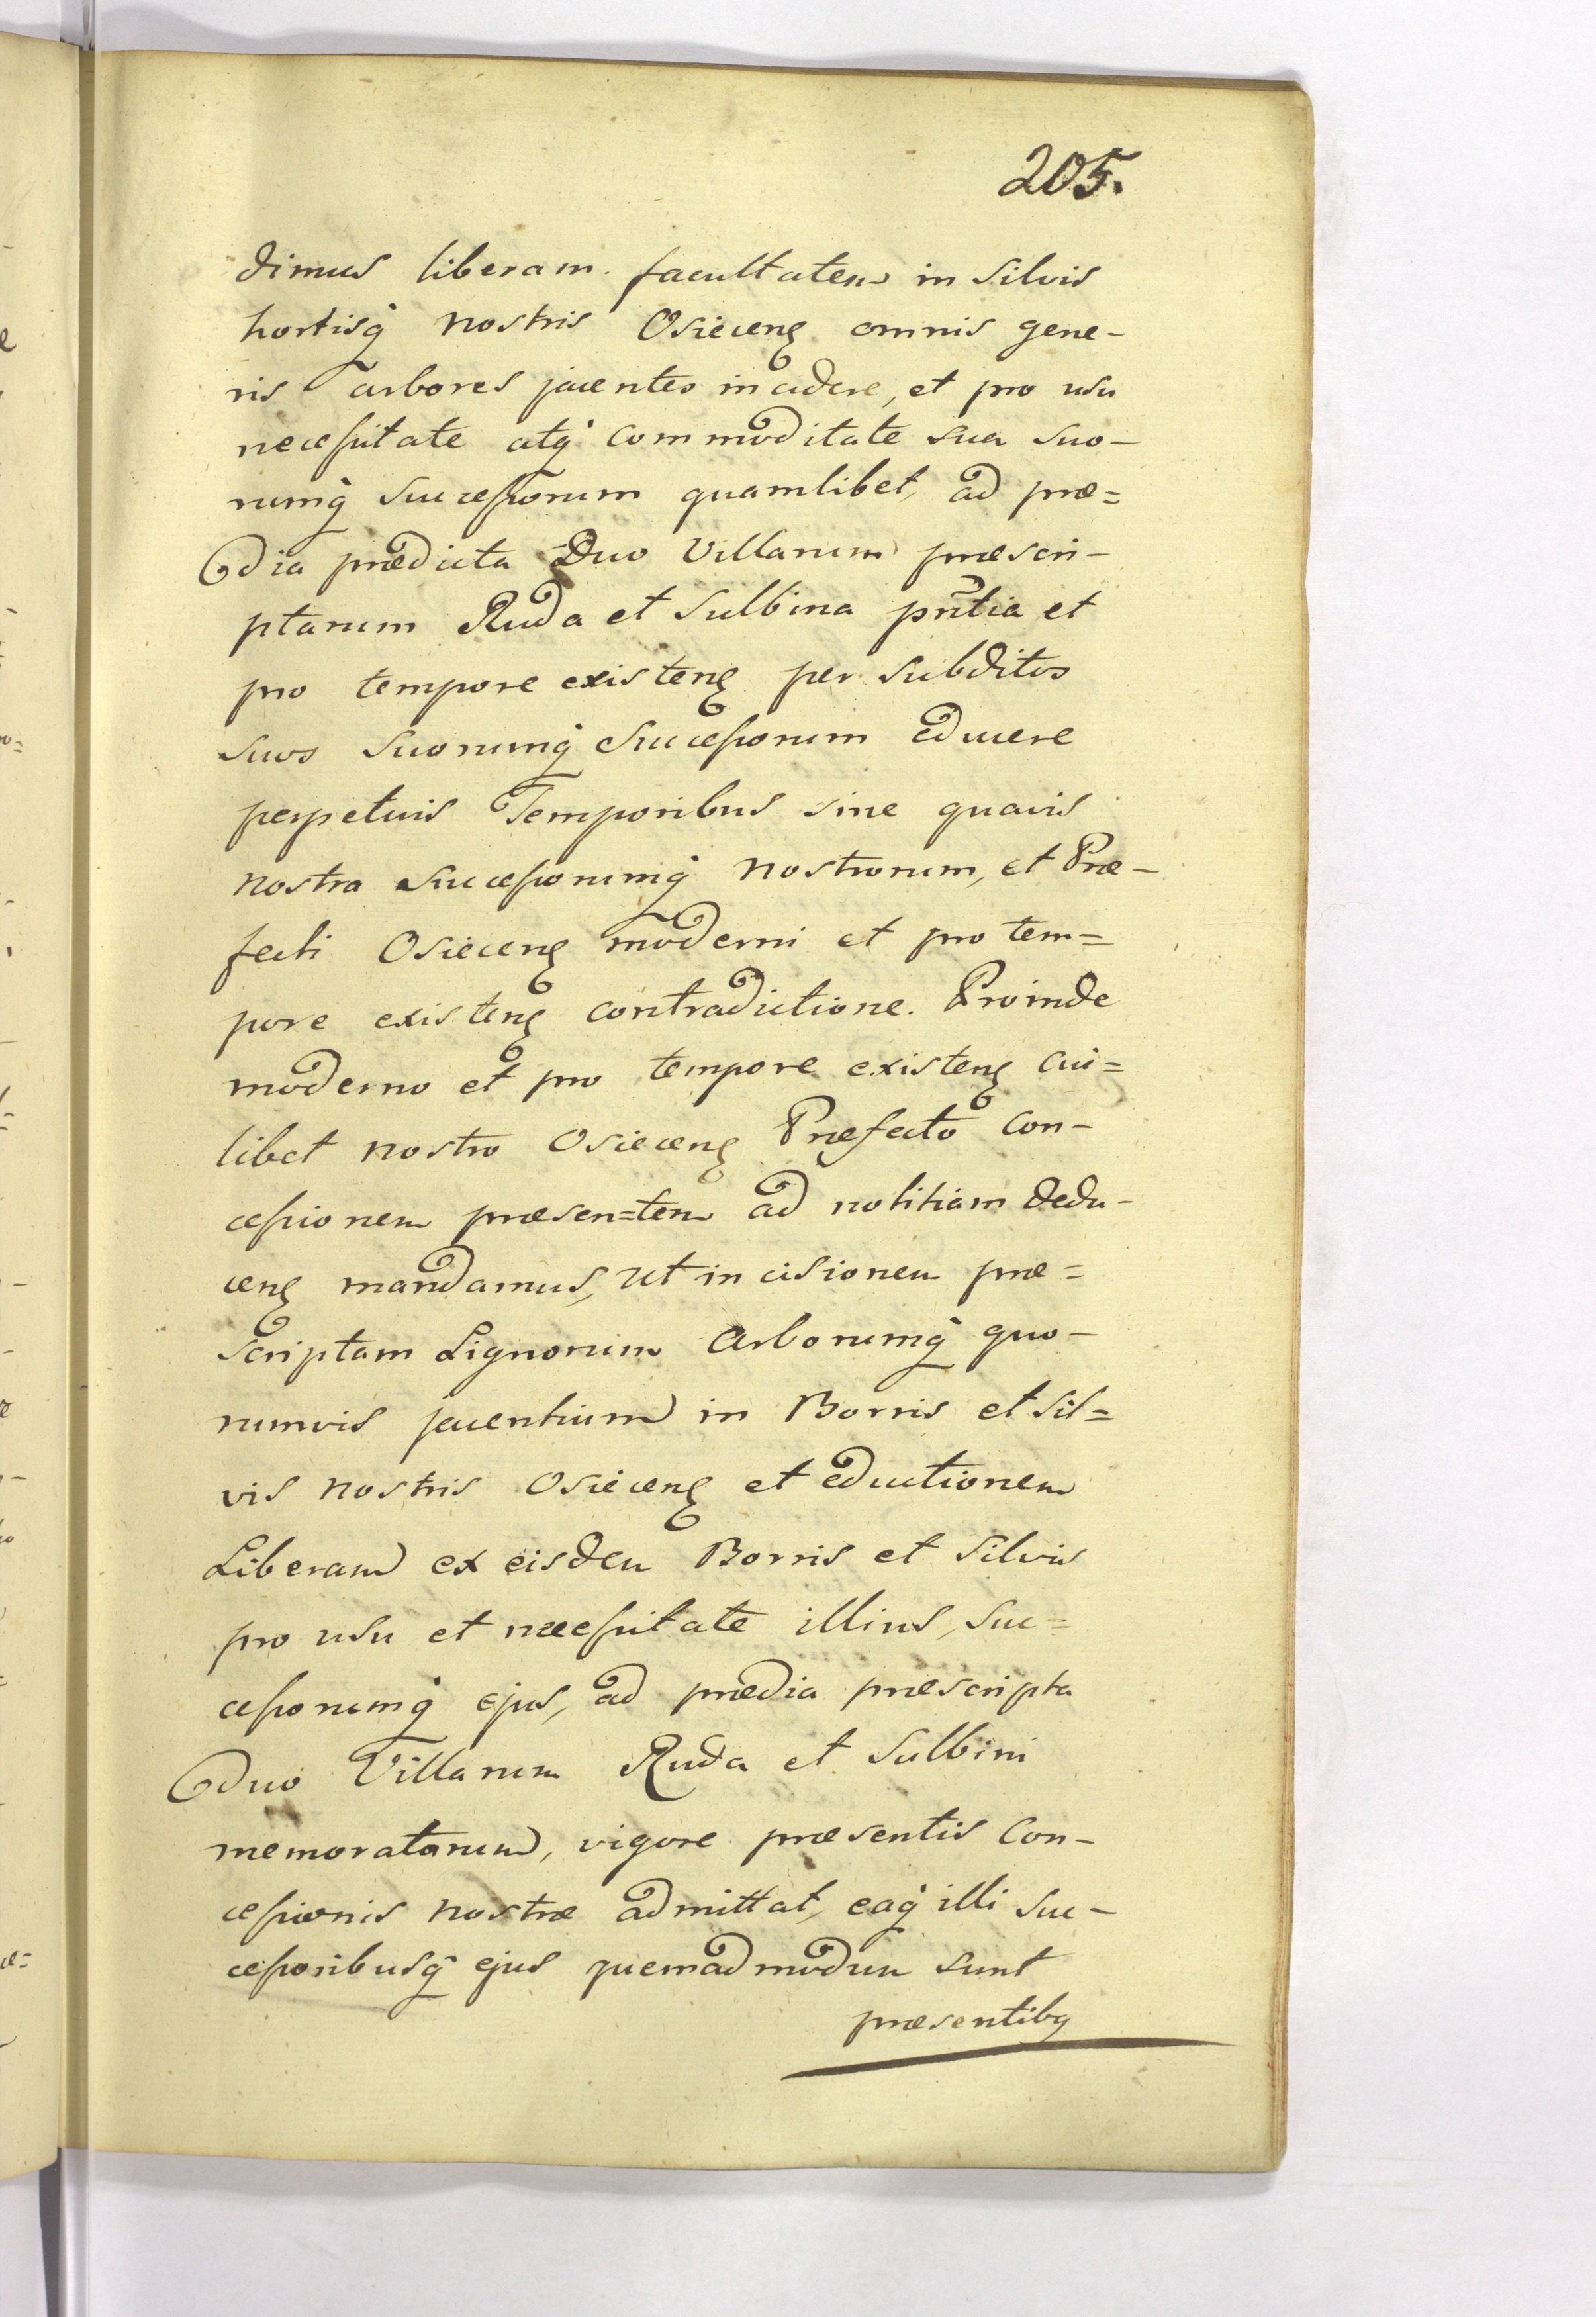 205.
dimus liberam facultatem in silvis
hortisq̃ nostris Osiecenʒ omnis gene-
ris arbores jacentes incidere, et pro usu
necessitate atq̃ commoditate sua suo-
rumq̃ Successorum quamlibet, ad præ=
dia prædicta Duo Villarum præscri-
ptarum Ruda et Sulbina pñtia et
pro tempore existenʒ per subditos
suos suorumq̃ Successorum educere
perpetuis Temporibus sine quavis
nostra Successorumq̃ nostrorum, et Præ-
fecti Osiecenʒ moderni et pro tem=
pore existenʒ contradictione. Proinde
moderno et pro tempore existenʒ cui=
libet nostro Osiecenʒ Præfecto con-
cessionem præsen=tem ad notitiam dedu-
cenʒ mandamus, ut incisionem præ=
scriptam Lignorum Arborumq̃ quo-
rumvis jacentium in Borris et sil=
vis nostris Osiecenʒ et eductionem
Liberam ex eisdem Borris et silvis
pro usu et necessitate illius, suc=
cessorumq̃ ejus, ad prædia præscripta
Duo Villarum Ruda et Sulbini
memoratarum, vigore præsentis Con-
cessionis nostræ admittat, eaq̃ illi suc-
cessoribusq̃ ejus quemadmodum sunt
præsentibq